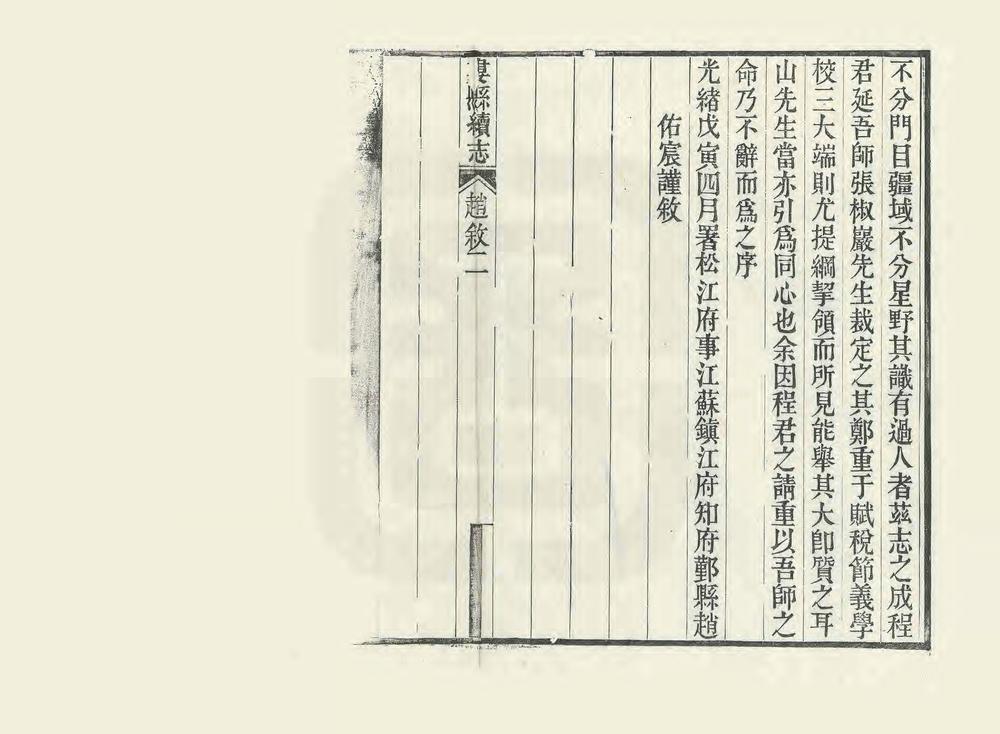 不分門目疆域不分星野其識有過人者茲志之成程
君延吾師張椒巖先生裁定之其鄭重于賦稅節義學
校三大端則尤提綱挈領而所見能舉其大卽質之耳
山先生當亦引爲同心也余因程君之請重以吾師之
命乃不辭而爲之序
光緒戊寅四月署松江府事江蘇鎮江府知府鄞縣趙
佑宸謹敘
婁縣續志
趙敘二